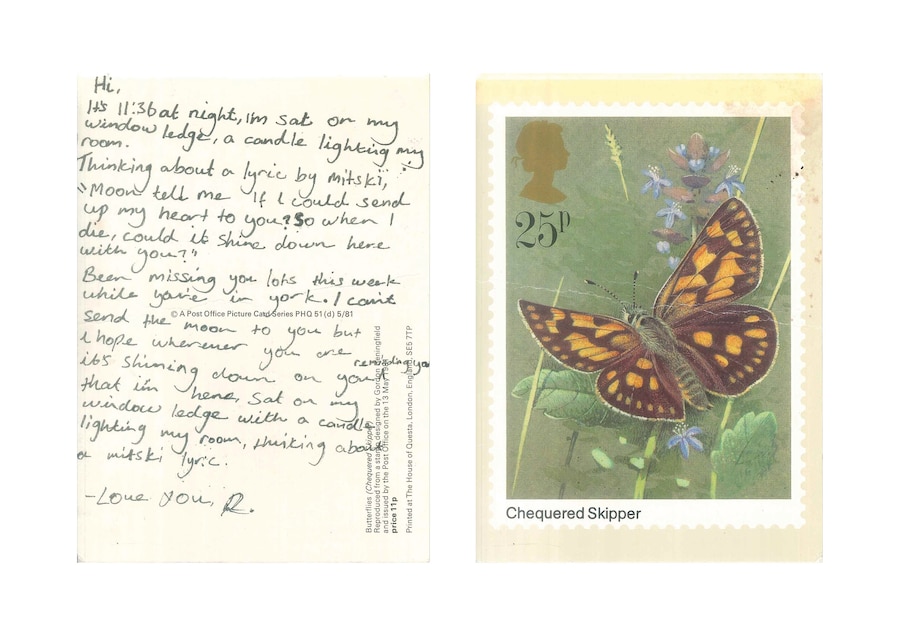 Hi,
It's 11:36 at night, I'm sat on my
window ledge, a candle lighting my
room.
Thinking about a lyric by mitski,
"Moon tell me If I could send
up my heart to you? So when I
die, could it shine down here
with you?"
Been missing you lots this week
while you're in york. I can't
send the moon to you but
I hope wherever you are
it's shining down on you & reminding you
that i'm here, sat on my
window ledge with a candle
lighting my room, thinking about
a mitski lyric.
-Love you, R.
© A Post Office Picture Card Series PHQ 51(d) 5/81
Butterflies (Chequered Skipper)
Reproduced from a stamp designed by Gordon Beningfield
and issued by the Post Office on the 13 May 1981
price 11p
Printed at The House of Questa, London, England, SE5 7TP
25p
Chequered Skipper